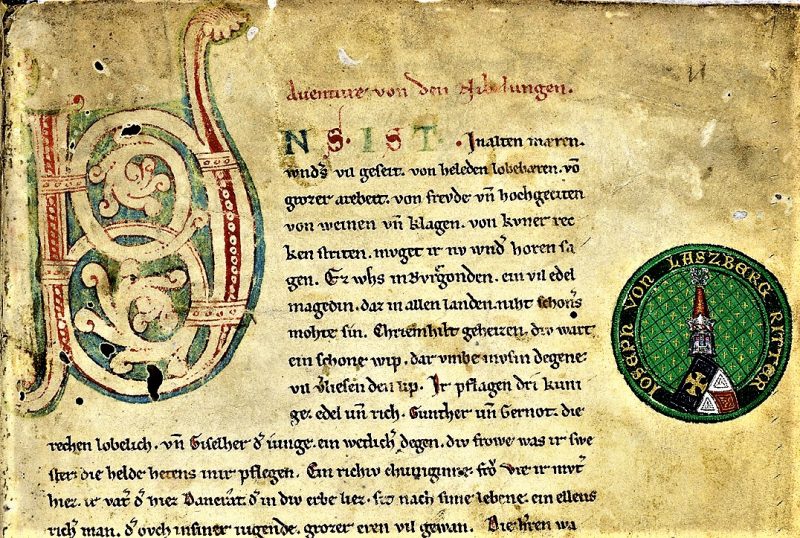 Auenture von den Nibelungen.
VNS. IST. Inalten mæren.
wnds vil geseit. von heleden lobebæren. võ
grozer arebeit. von freude vñ hochgeciten
von weinen vñ klagen. von kuner rec
ken striten. muget ir nv wnd horen sa
gen. Ez whs inBurgonden. ein vil edel
magedin. daz in allen landen. niht schoners
mohte sin. Chriemhilt geheizen. div wart
ein schone wip. dar vmbe mvsin degene
vil vliesen den lip. Ir pflagen dri kuni
ge. edel vñ rich. Gunther vñ Gernot. die
rechen lobelich. vñ Giselher d iunge. ein wetlich degen. div frowe was ir swe
ster die helde hetens inir pflegen. Ein richiv chuniginne. fro Vte ir mvt
hiez. ir vat d hiez Dancrat. d in div erbe liez. sit nach sime lebene. ein ellens
rich man. d ovch insiner iugende. grozer eren vil gewan. Die hren wa
IOSEPH VON LASZBERG RITTER